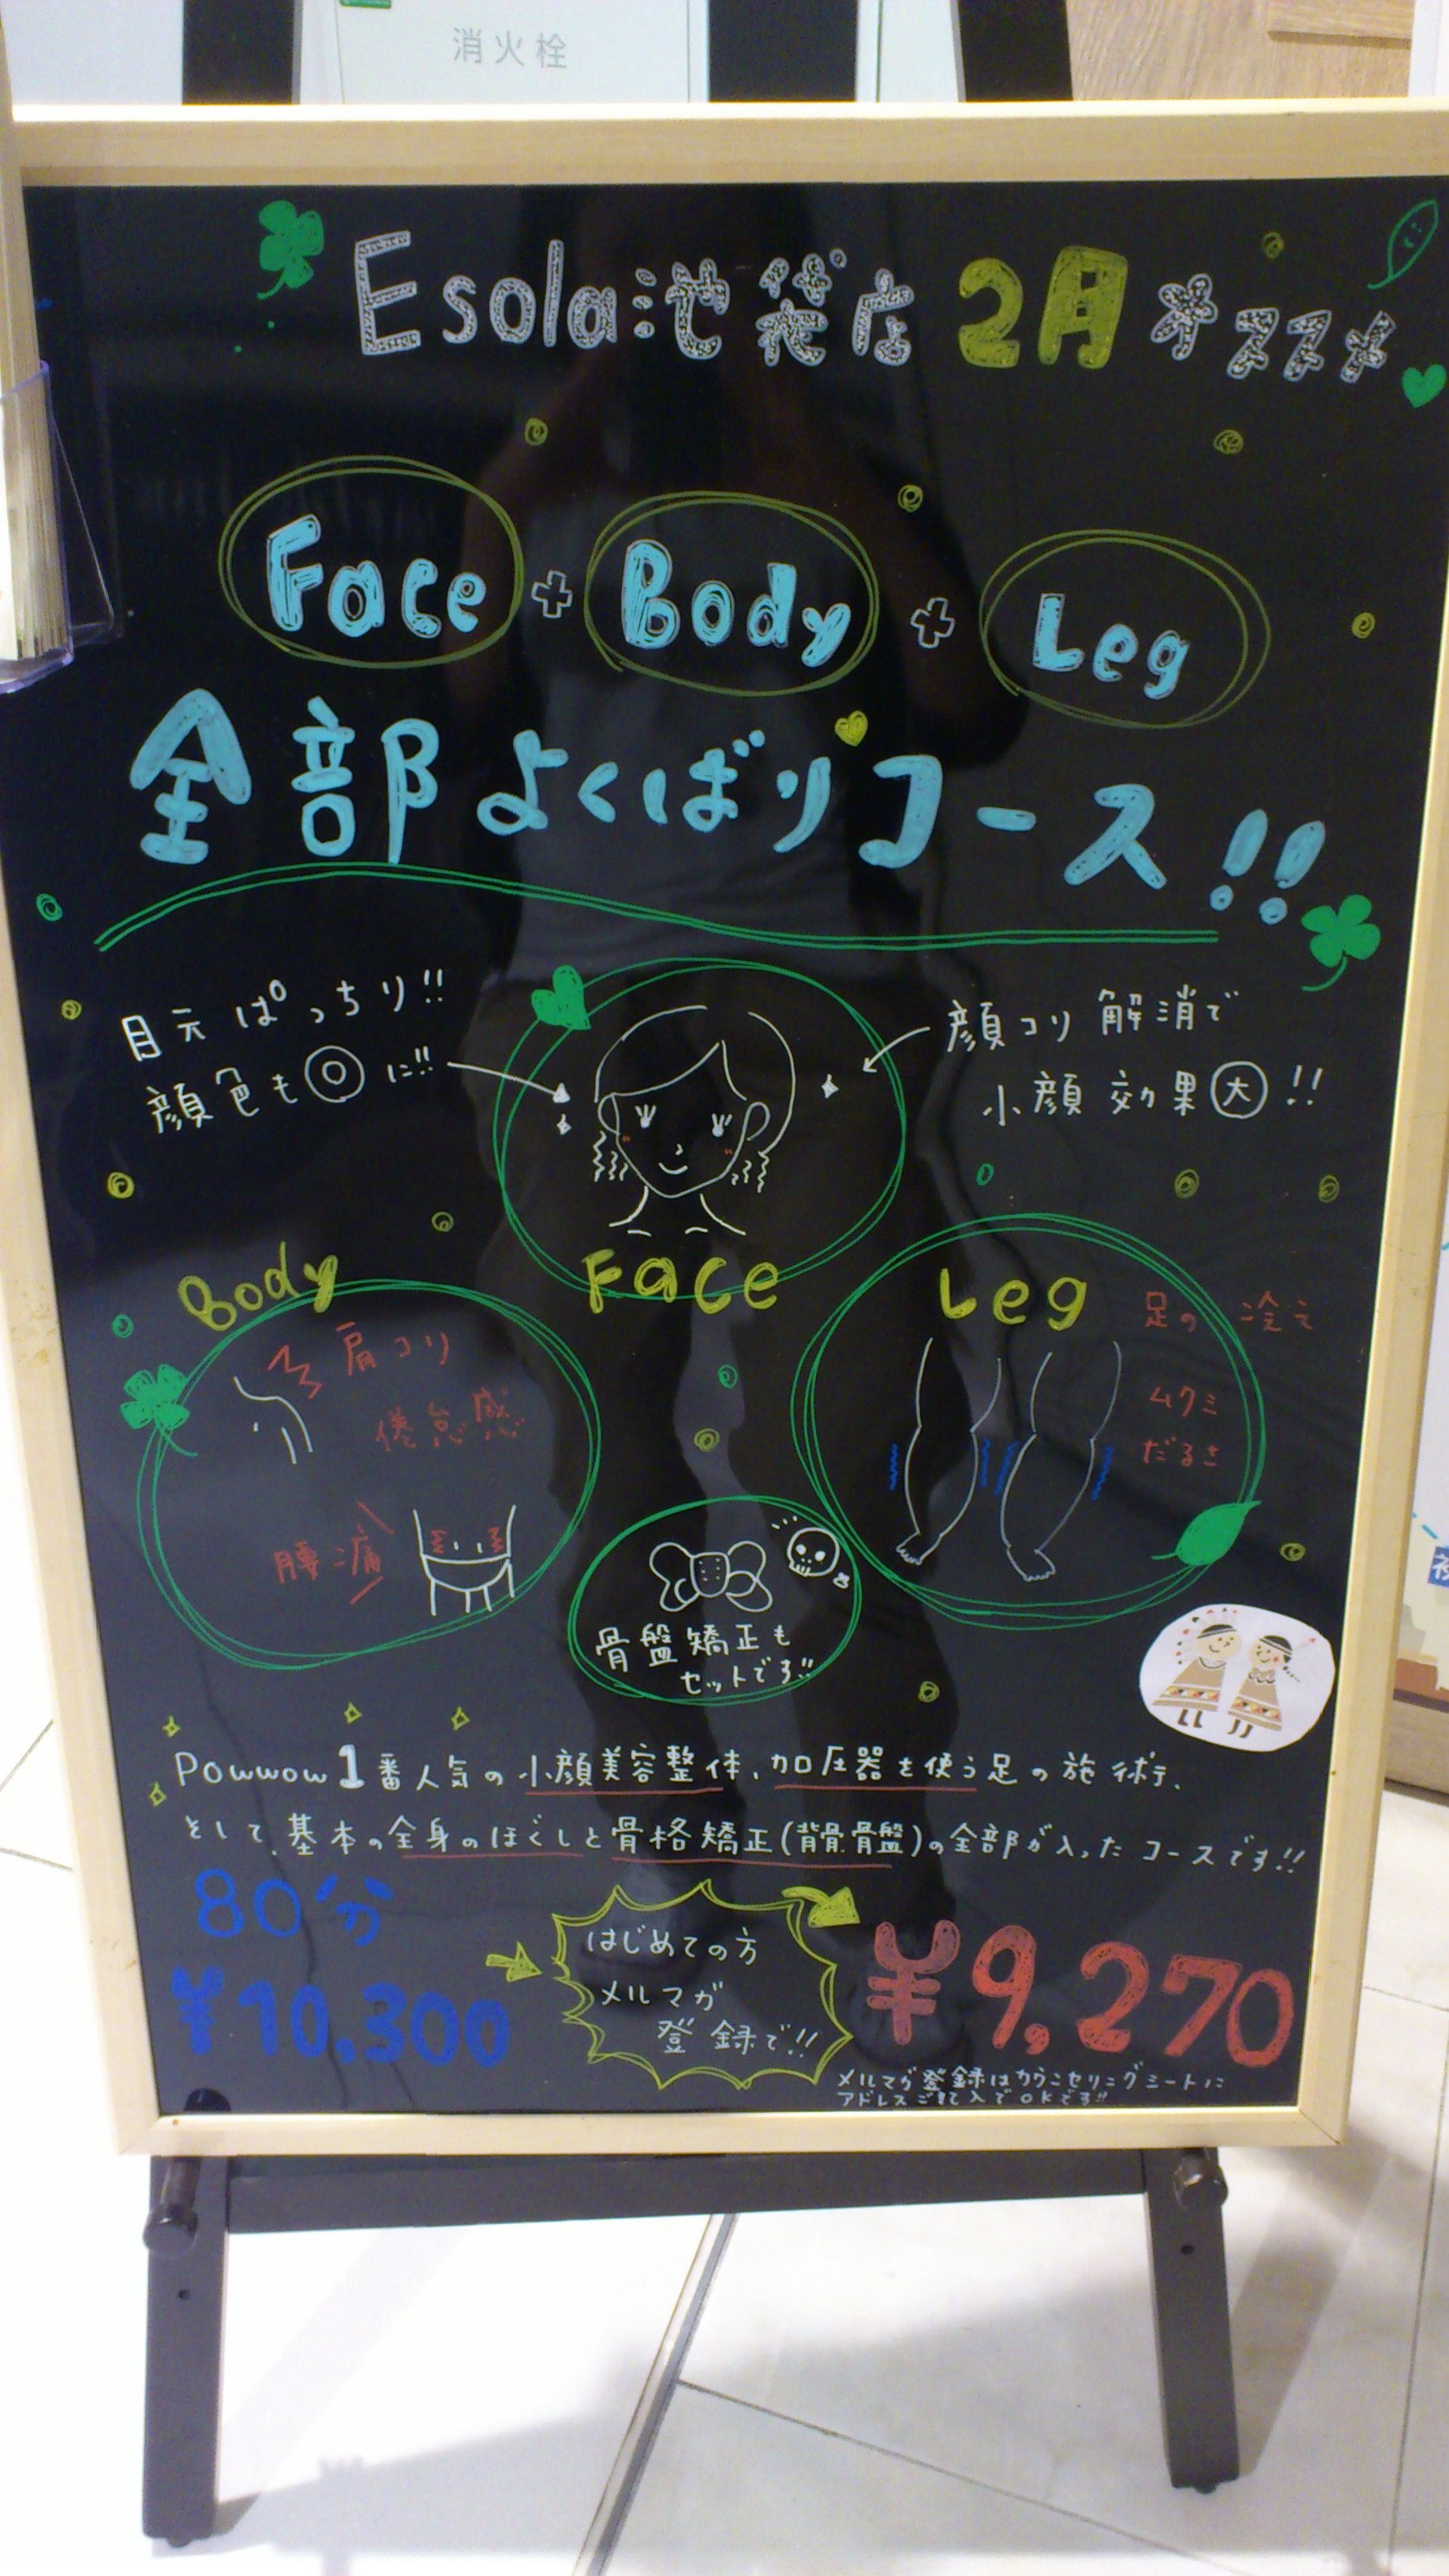 消火栓
Esola池袋店 2月オススメ
Face + Body + Leg
全部よくばりコース!!
目元ぱっちり!!
顔色も◎に!!
顔コリ解消で
小顔効果大!!
Face
Body
肩コリ
倦怠感
腰痛
Leg
足の冷え
ムクミ
だるさ
骨盤矯正も
セットです!!
Powwow1番人気の小顔美容整体、加圧器を使う足の施術、
そして、基本の全身のほぐしと骨格矯正(背骨.骨盤)の全部が入ったコースです!!
80分
¥10,300
はじめての方
メルマガ
登録で!!
¥9,270
メルマガ登録はカウンセリングシートに
アドレスご記入でOKです!!